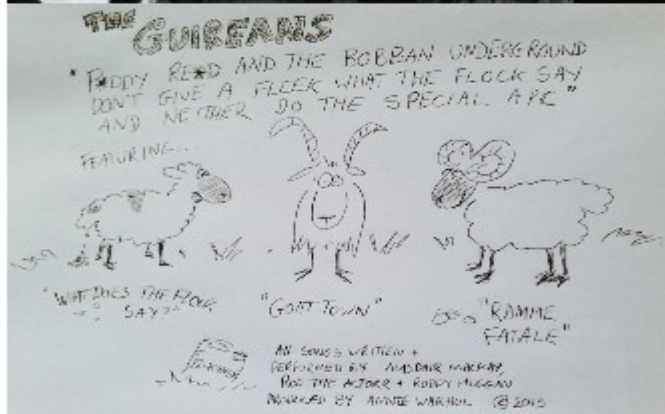 THE
GUIREANS
"P*DDY RE*D AND THE BOBBAN UNDERGROUND
DON'T GIVE A FLEEK WHAT THE FLOCK SAY
AND NEITHER DO THE SPECIAL APE"
FEATURING...
"WHAT DOES THE FLOCK
SAY?"
"GOAT TOWN"
"RAMME
FATALE"
ALL SONGS WRITTEN +
PERFORMED BY ALASDAIR
THE + RODDY HUGGAN
PRODUCED BY ANNIE WARHOL © 2015